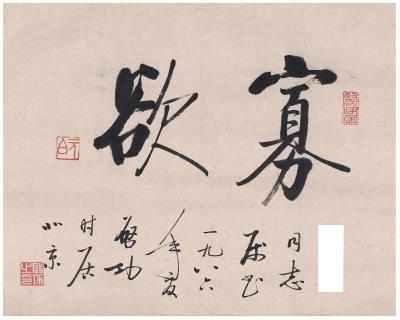 寡欲
同志
属书
一九八六
年夏
启功
时居
北京